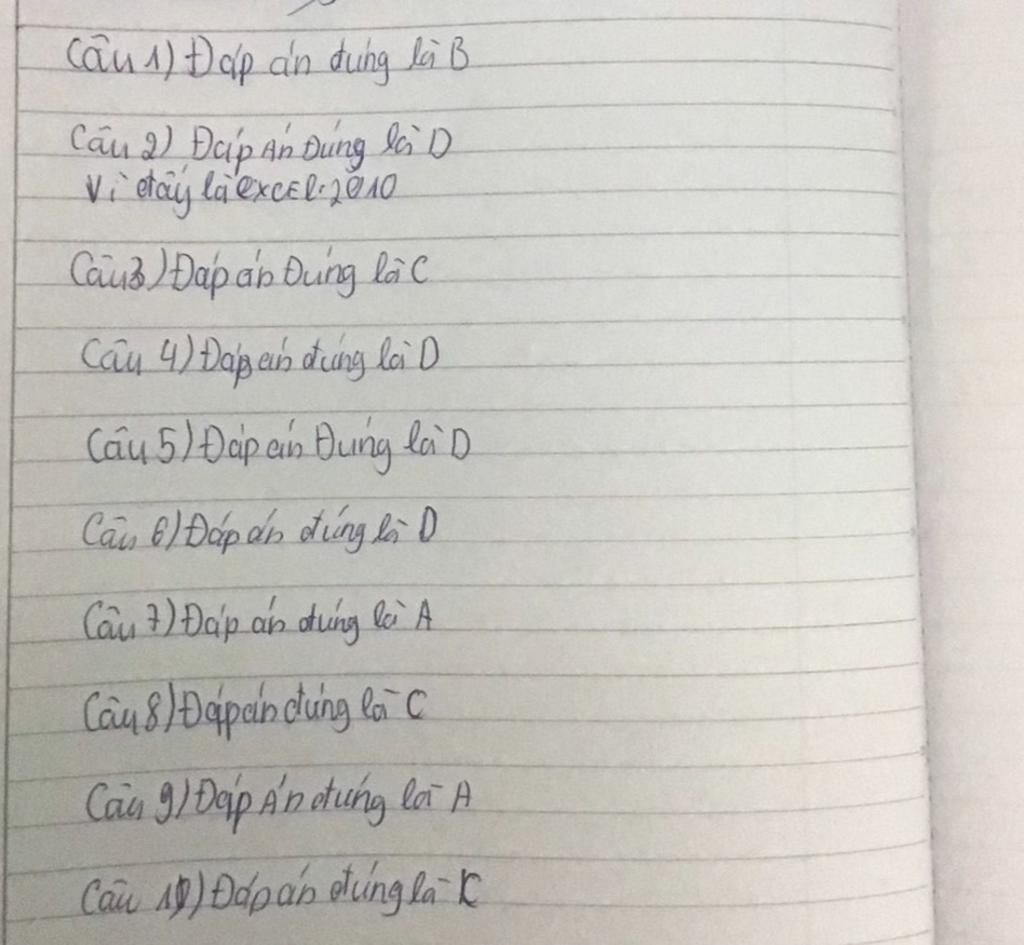 Câu 1) Đáp án đúng là B
Câu 2) Đáp Án Đúng là D
Vì đây là excel.2010
Câu 3) Đáp án Đúng là C
Câu 4) Đáp án đúng là D
Câu 5) Đáp án Đúng là D
Câu 6) Đáp án đúng là D
Câu 7) Đáp án đúng là A
Câu 8) Đáp án đúng là C
Câu 9) Đáp Án đúng là A
Câu 10) Đáp án đúng là C